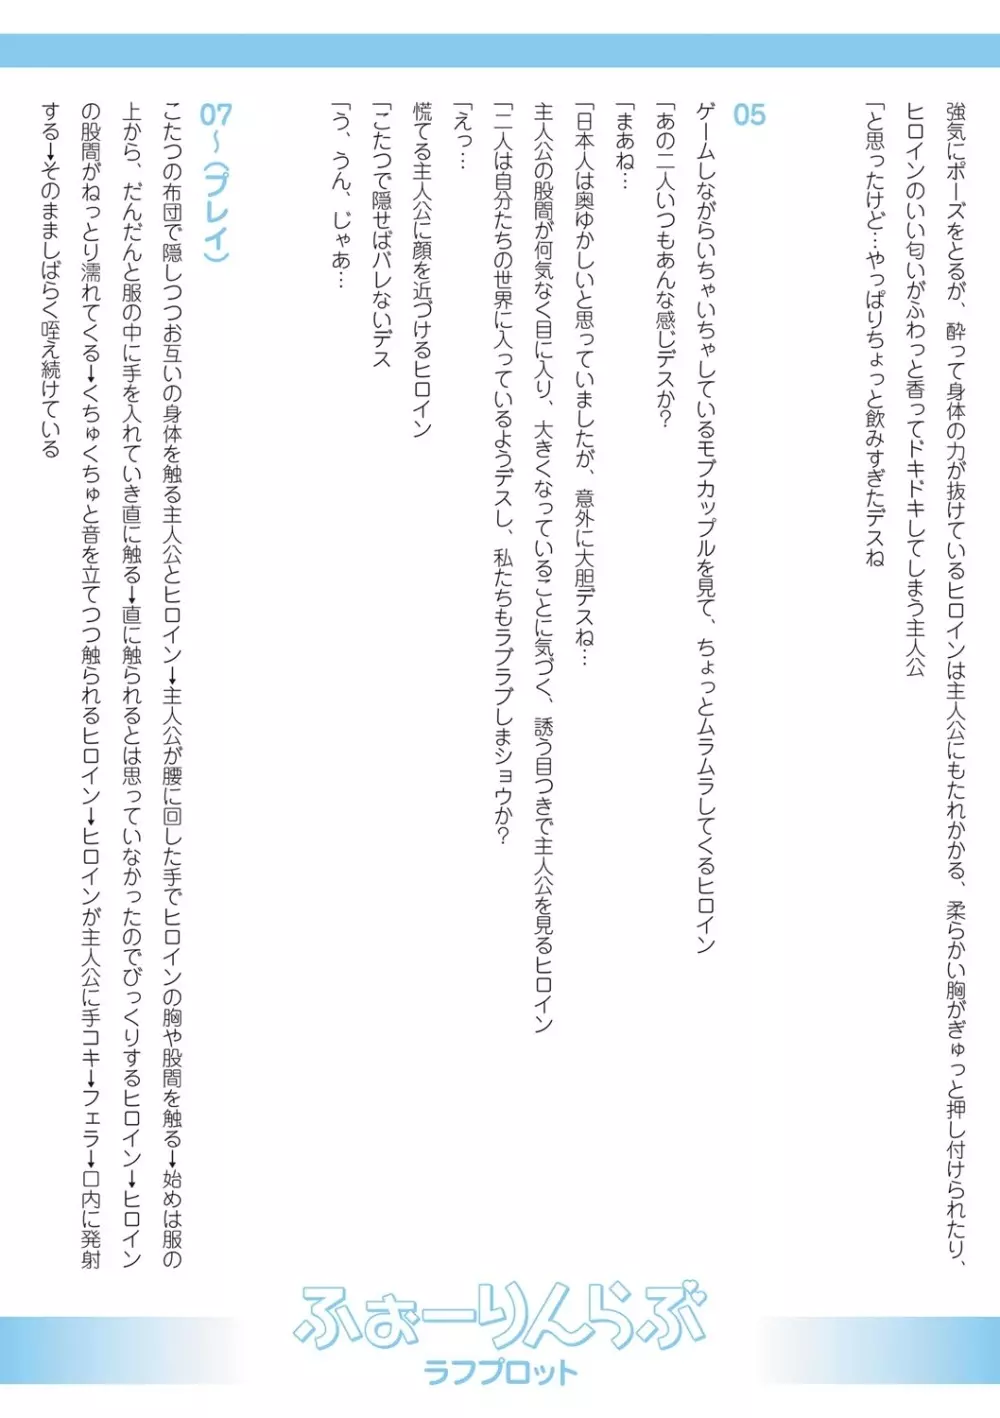 強気にポーズをとるが、酔って身体の力が抜けているヒロインは主人公にもたれかかる、柔らかい胸がぎゅっと押し付けられたり、
ヒロインのいい匂いがふわっと香ってドキドキしてしまう主人公
「と思ったけど…やっぱりちょっと飲みすぎたデスね
05
ゲームしながらいちゃいちゃしているモブカップルを見て、ちょっとムラムラしてくるヒロイン
「あの二人いつもあんな感じデスか？
「まあね…
「日本人は奥ゆかしいと思っていましたが、意外に大胆デスね…
主人公の股間が何気なく目に入り、大きくなっていることに気づく、誘う目つきで主人公を見るヒロイン
「二人は自分たちの世界に入っているようデスし、私たちもラブラブしまショウか？
「えっ…
慌てる主人公に顔を近づけるヒロイン
「こたつで隠せばバレないデス
「う、うん、じゃあ…
07～（プレイ）
こたつの布団で隠しつつお互いの身体を触る主人公とヒロイン→主人公が腰に回した手でヒロインの胸や股間を触る→始めは服の
上から、だんだんと服の中に手を入れていき直に触る→直に触られるとは思っていなかったのでびっくりするヒロイン→ヒロイン
の股間がねっとり濡れてくる→くちゅくちゅと音を立てつつ触られるヒロイン→ヒロインが主人公に手コキ→フェラ→口内に発射
する→そのまましばらく咥え続けている
ふぉーりんらぶ
ラフプロット